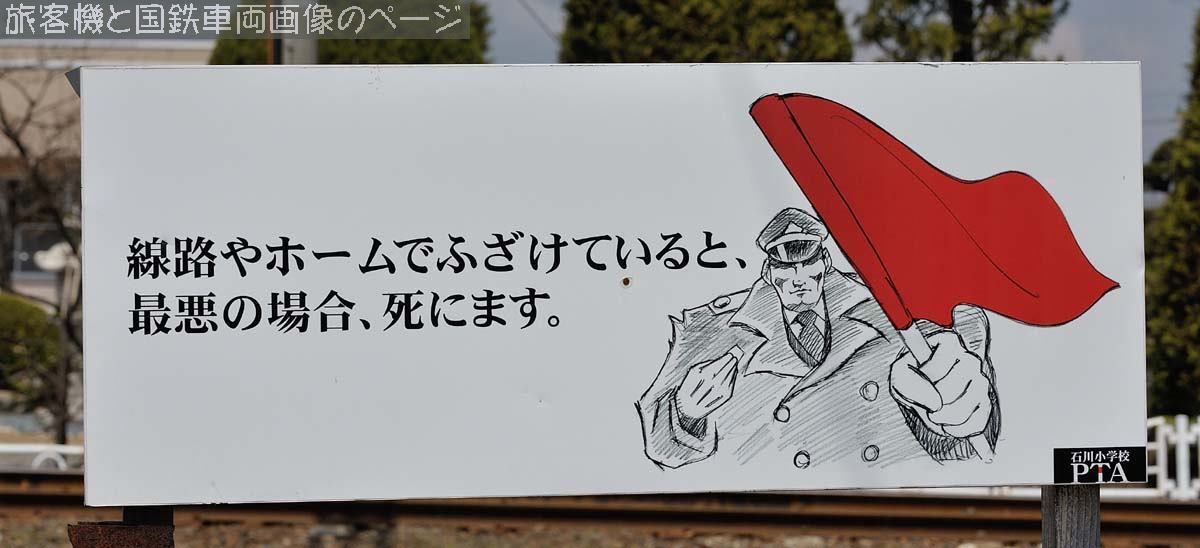 旅客機と国鉄車両画像のページ
線路やホームでふざけていると、
最悪の場合、死にます。
石川小学校
PTA